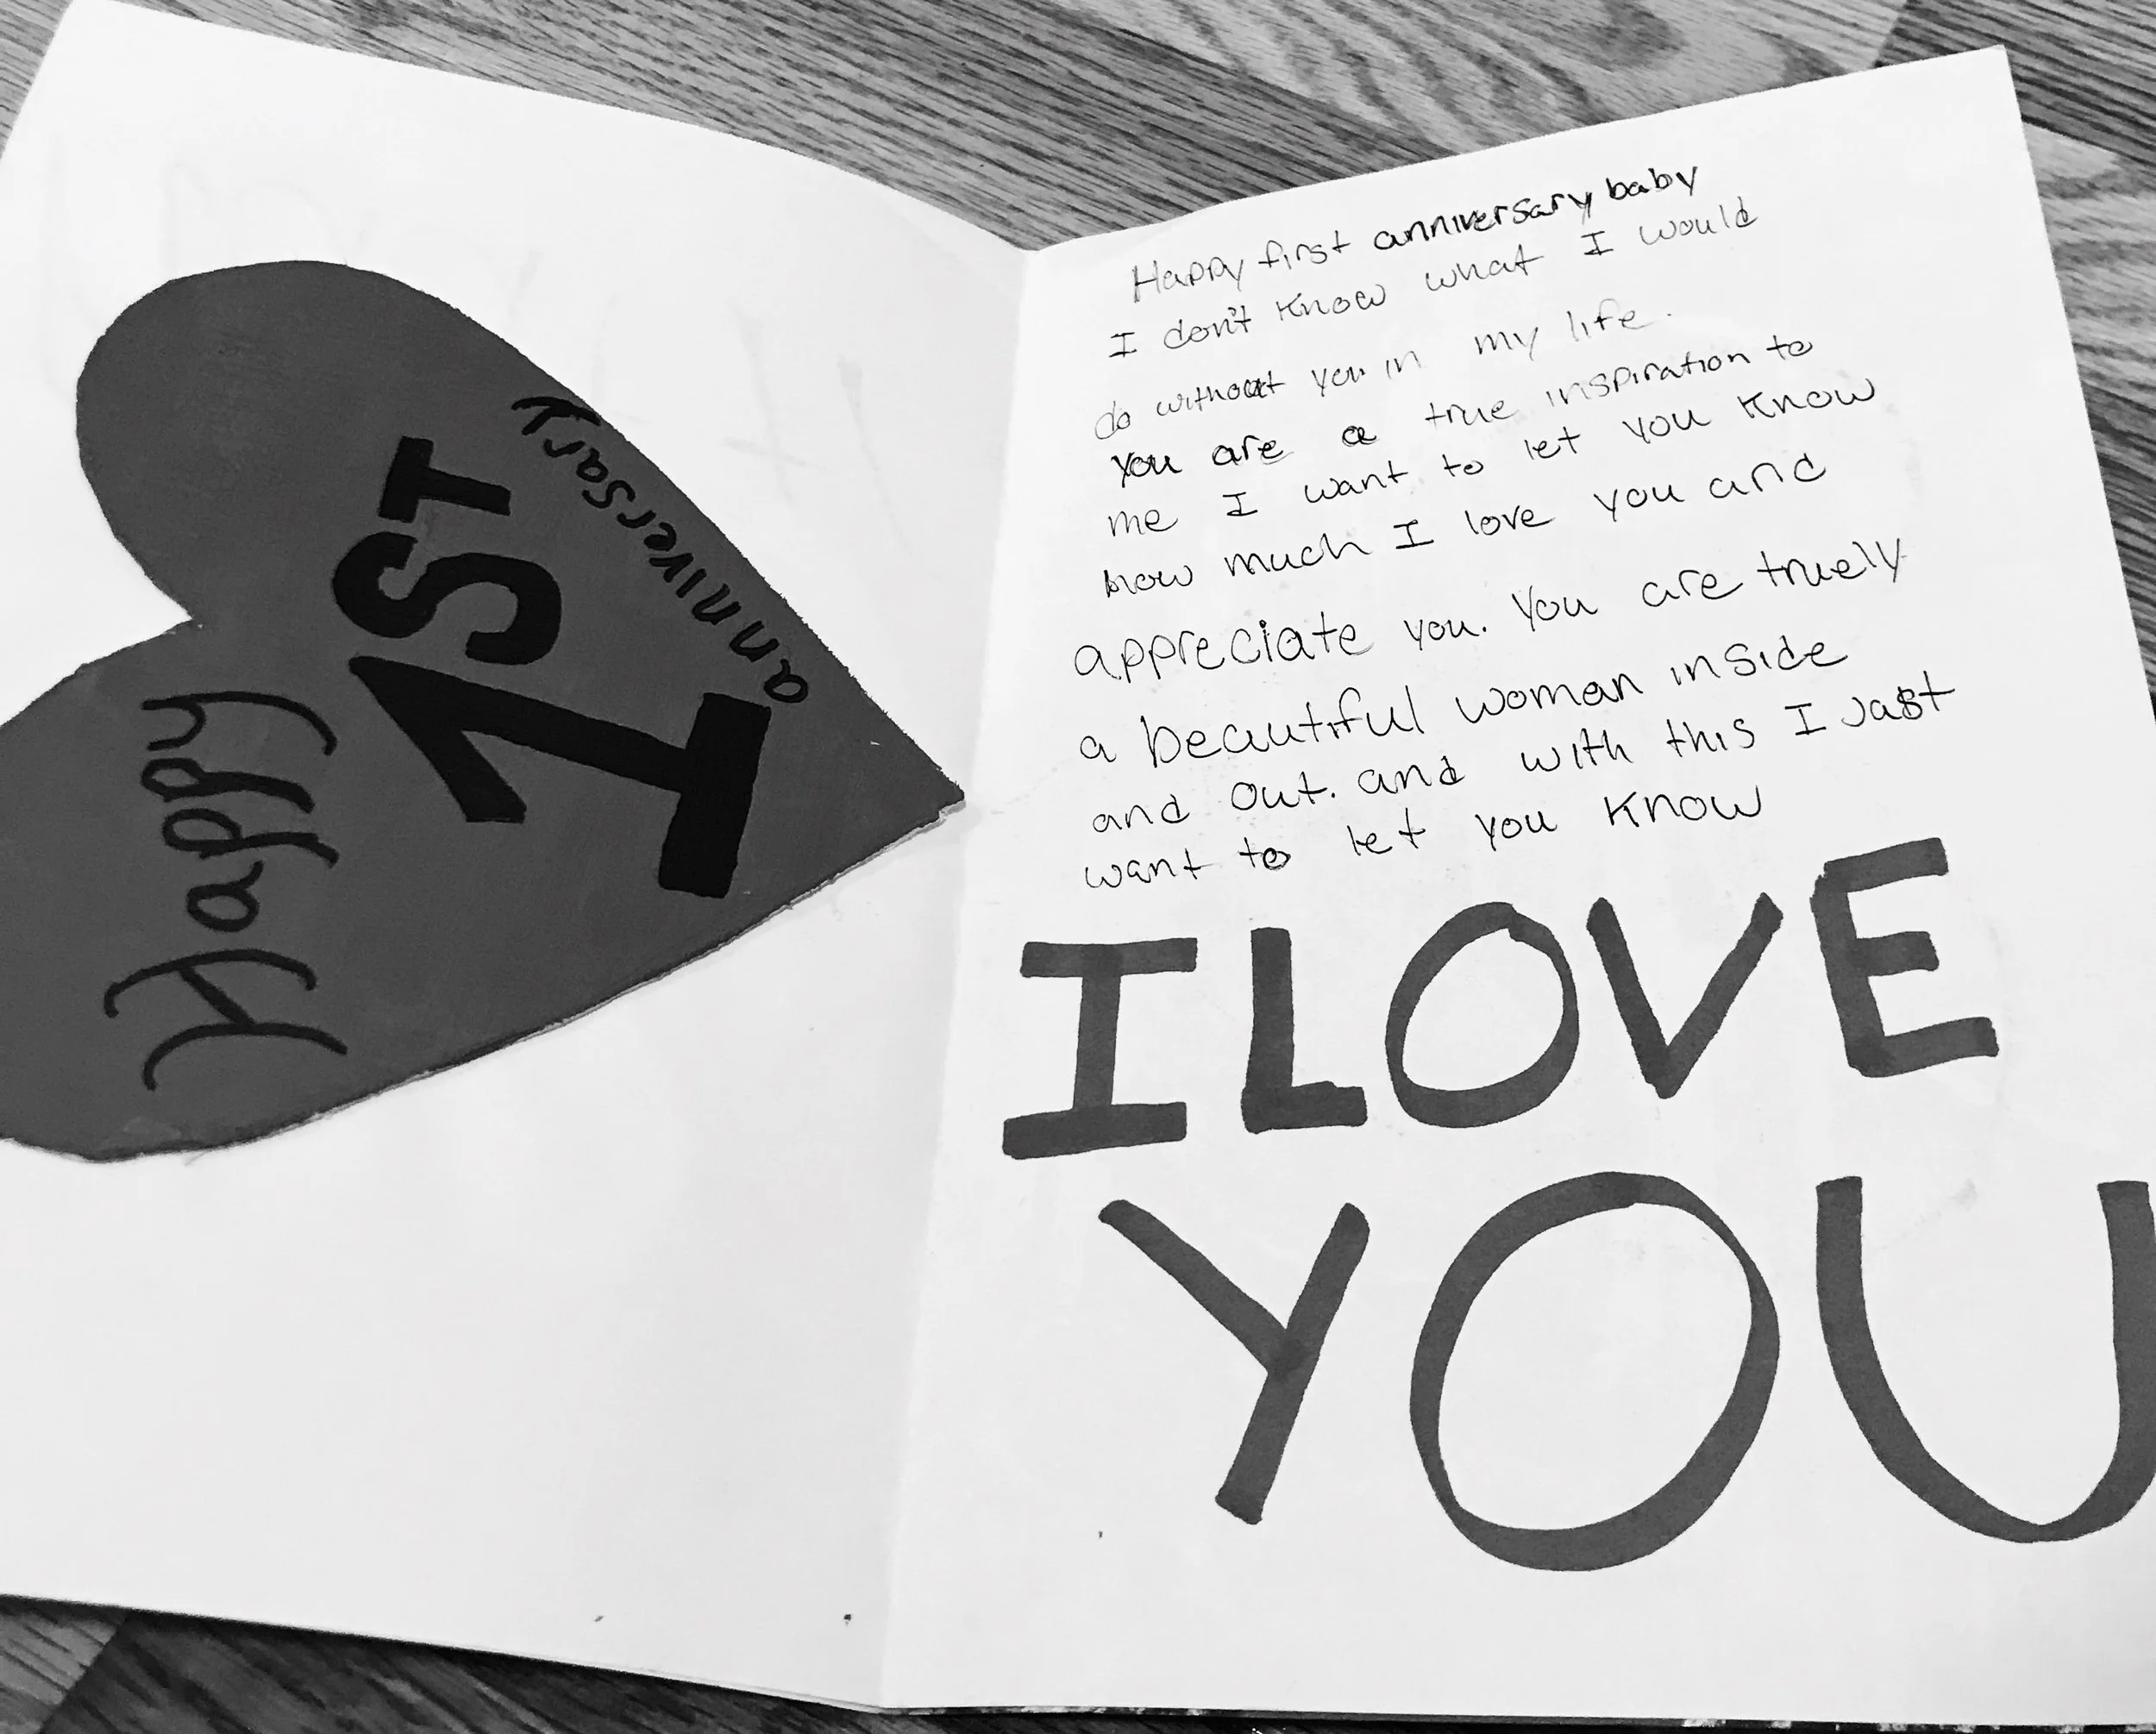 Happy
1ST
anniversary
Happy first anniversary baby
I don't know what I would
do without you in my life.
you are a true inspiration to
me I want to let you know
how much I love you and
appreciate you. You are truely
a beautiful woman inside
and out. and with this I Just
want to let you know
I LOVE
YOU